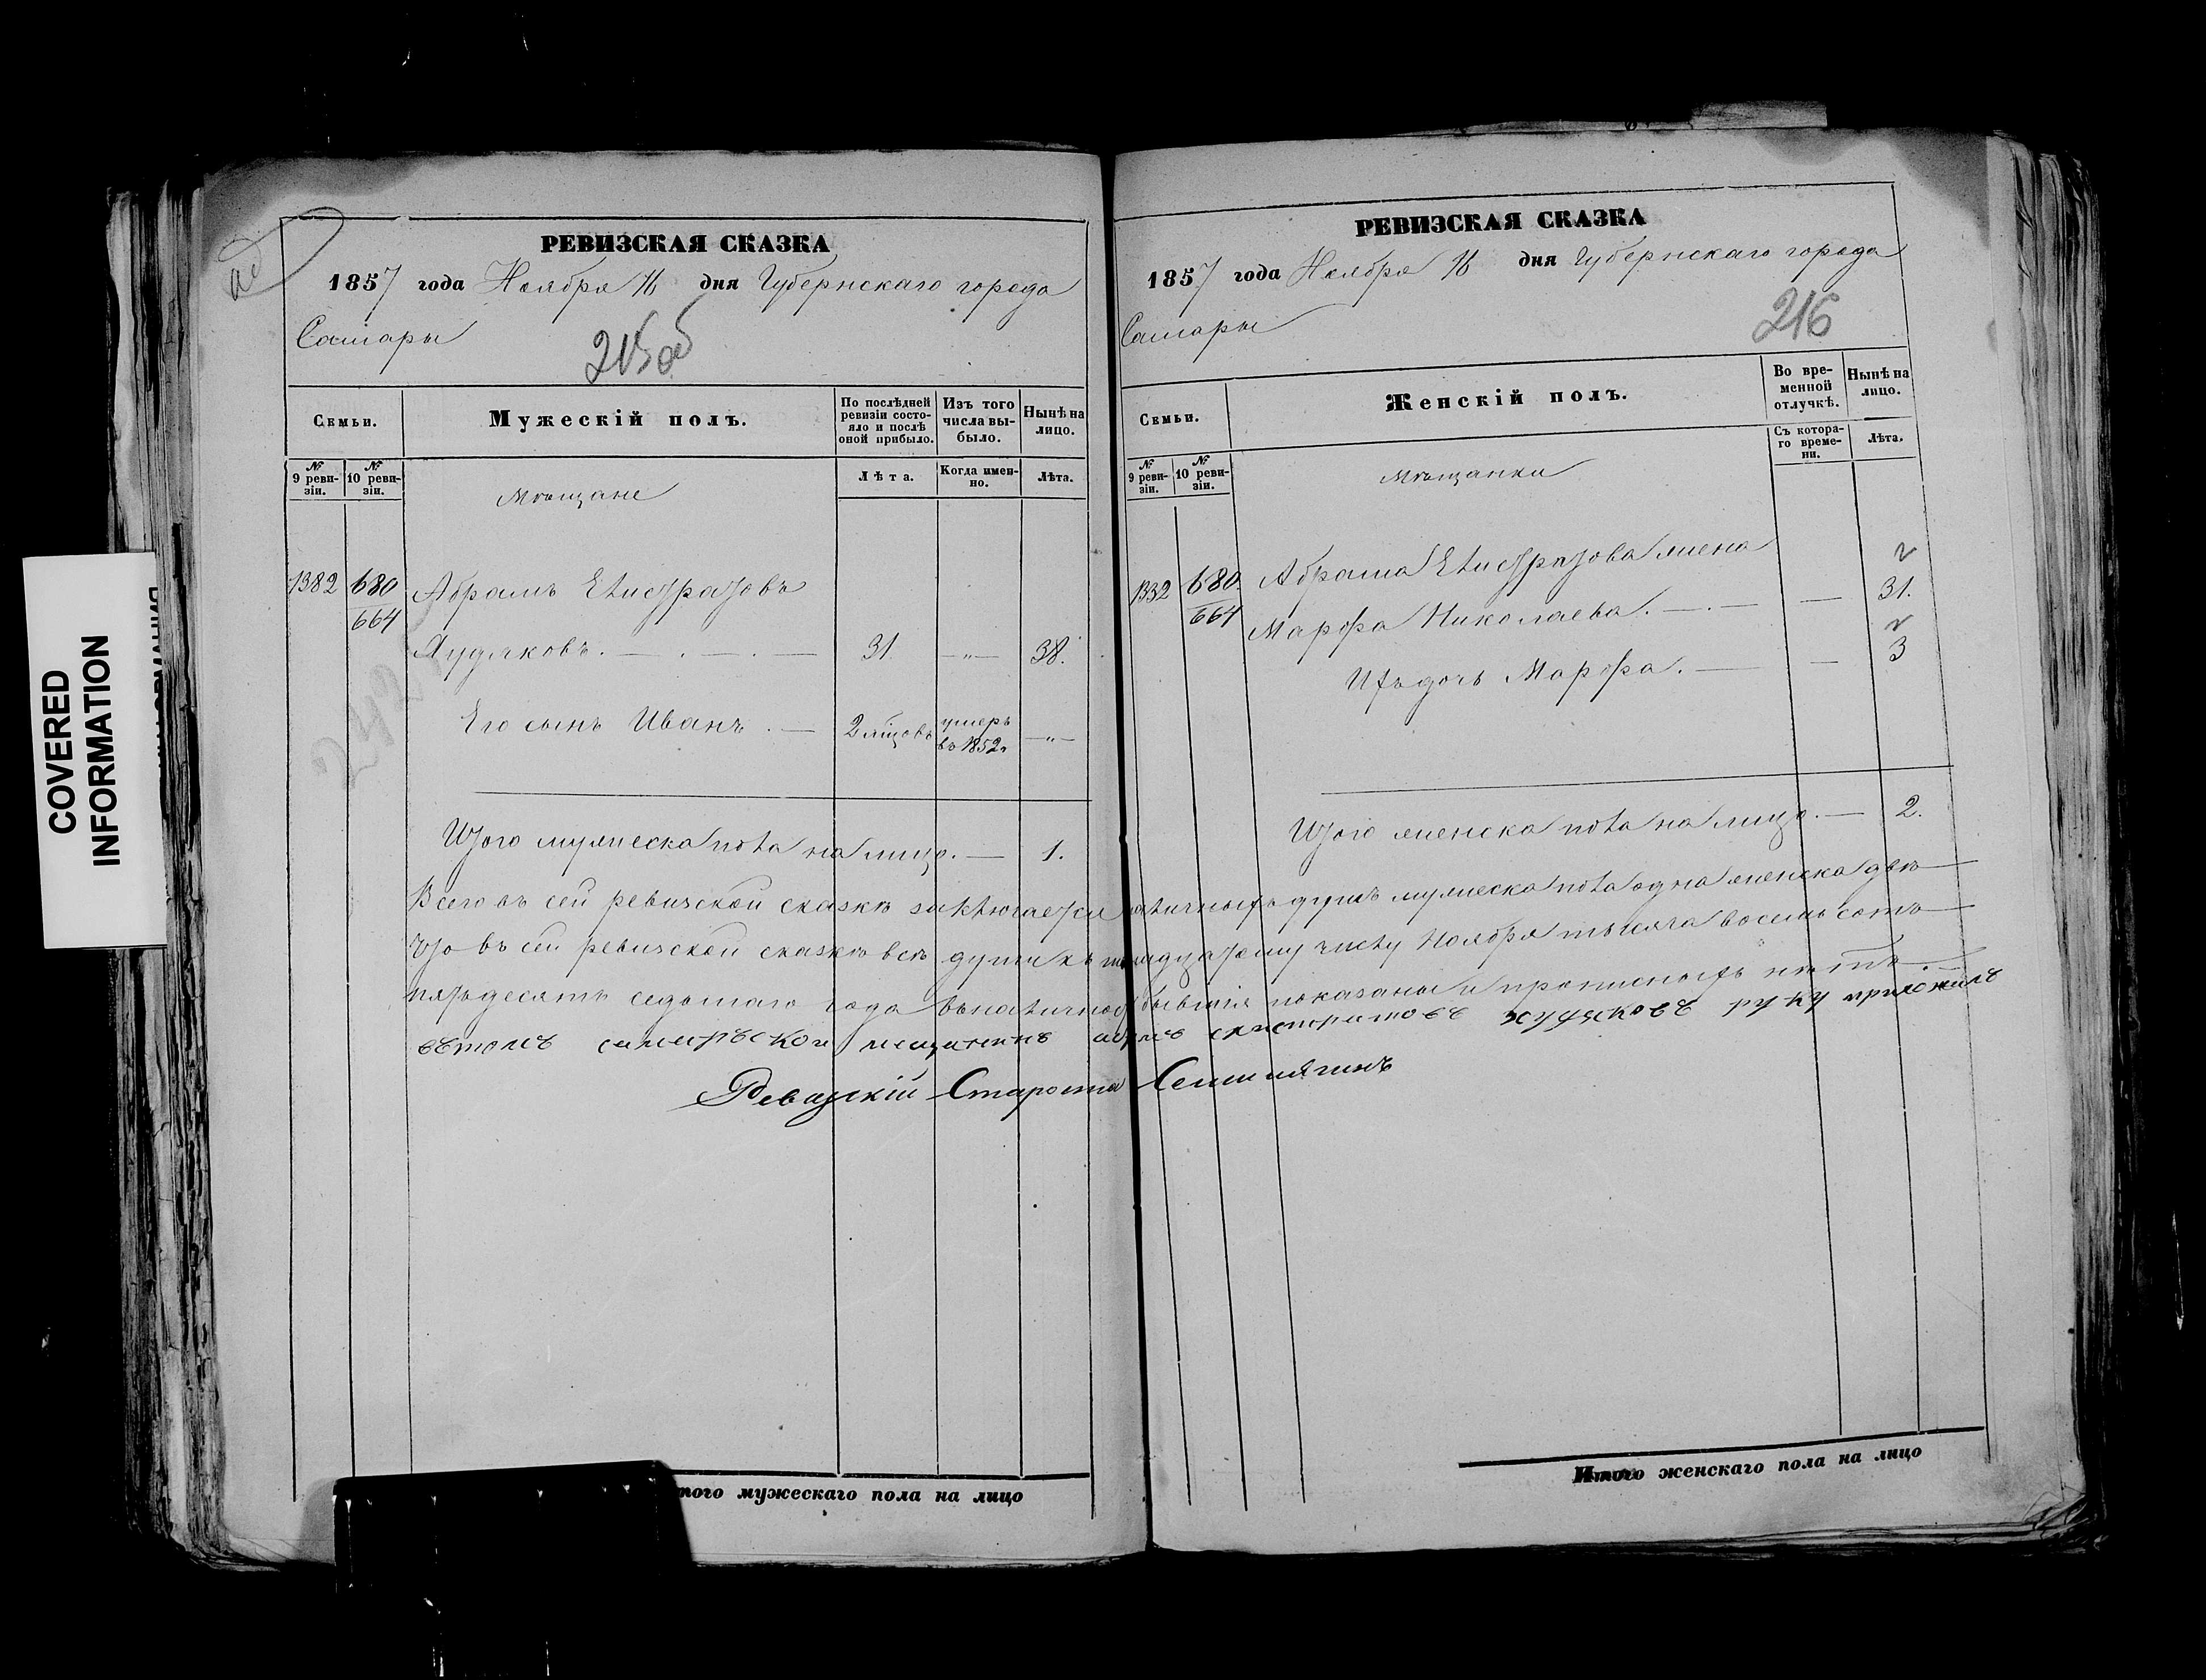 COVERED
INFORMATION
об
РЕВИЗСКАЯ СКАЗКА
1857 года Ноября 16 дня Губернскаго города
Самары
215об
Семьи.
Мужескій полъ.
По послѣдней ревизіи состояло и послѣ оной прибыло.
Изъ того числа выбыло.
Нынѣ на лицо.
№ 9 ревизіи.
№ 10 ревизіи.
Мѣщане
Лѣта.
Когда именно.
Лѣта.
1382 680 Абрамъ Елистратовъ
664
Худяковъ. — . — . — 31. —„— 38.
Его сынъ Иванъ . — 2 мѣсцовъ умеръ въ 1852 г. —„—
Итого мужеска пола на лицо. — 1.
РЕВИЗСКАЯ СКАЗКА
1857 года Ноября 16 дня Губернскаго города
Самары
216
Семьи.
Женскій полъ.
Во временной отлучкѣ.
Нынѣ на лицо.
№ 9 ревизіи.
№ 10 ревизіи.
Мѣщанки
Съ котораго времени.
Лѣта.
1332 680. Абрама Елистратова жена
664 Марфа Николаева. — . — — 31.
Ихъ дочь Марфа. — — 3
Итого женска пола на лицо. — 2.
Всего въ сей ревизской сказкѣ заключается наличныхъ душъ мужеска пола одна женска двѣ
Что въ сей ревизской сказкѣ всѣ души къ числу Ноября тысяча восемь сотъ
пятьдесятъ седьмаго года въ наличности бывшія показаны и прописныхъ нѣтъ.
вътомъ самаръской мещининъ абрамъ елистратовъ худяковъ руку приложилъ
Ревизскій Староста
того мужескаго пола на лицо
Итого женскаго пола на лицо